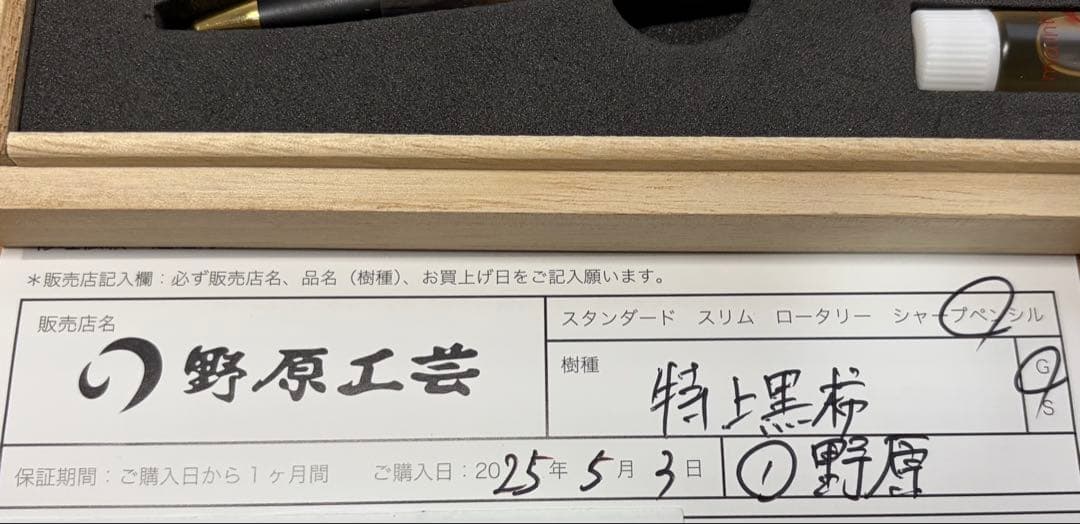 ＊販売店記入欄：必ず販売店名、品名（樹種）、お買上げ日をご記入願います。
販売店名
野原工芸
スタンダード　スリム　ロータリー　シャープペンシル
樹種
特上黒柿
G
S
保証期間：ご購入日から１ヶ月間　ご購入日：2025年5月3日
① 野原